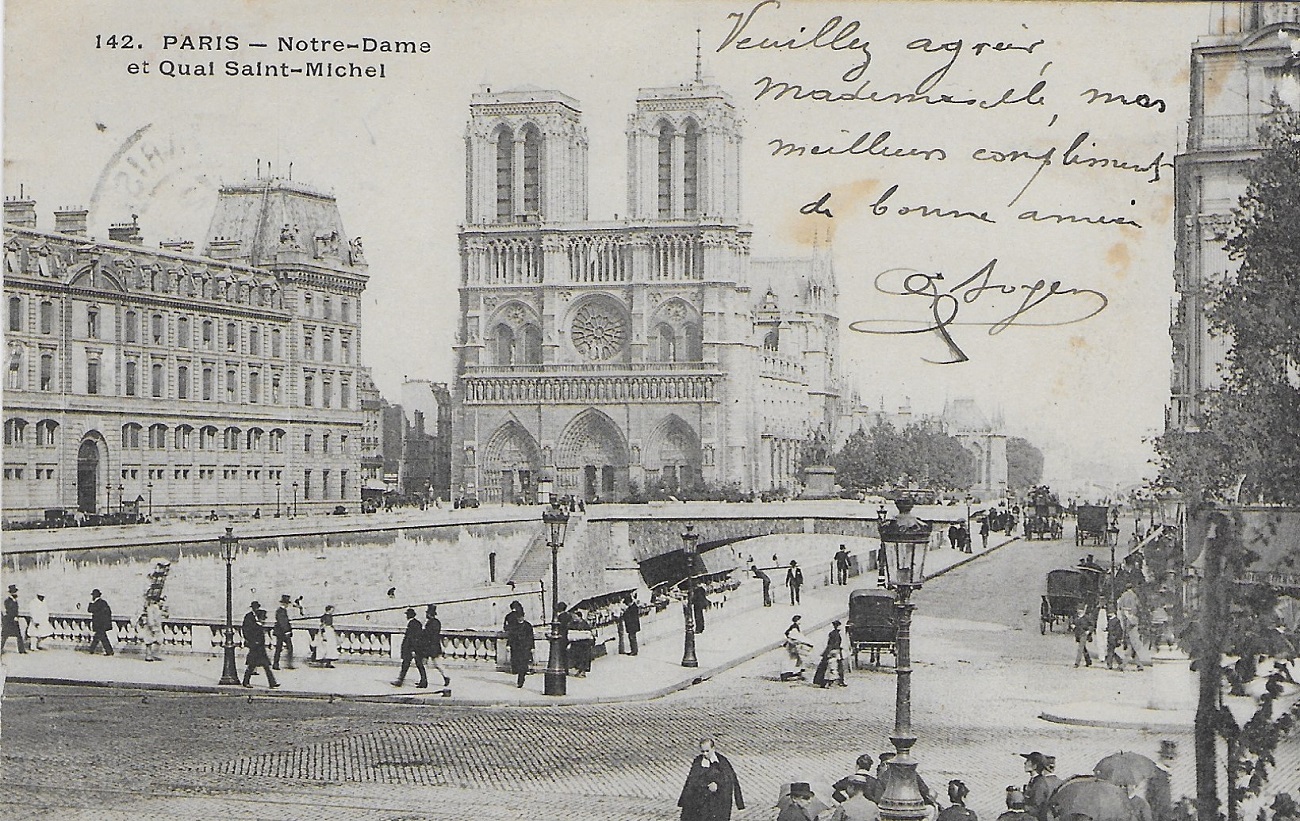 142. PARIS – Notre-Dame
et Quai Saint-Michel
Veuillez agréer,
Mademoiselle, mes
meilleurs compliments
de bonne amitié